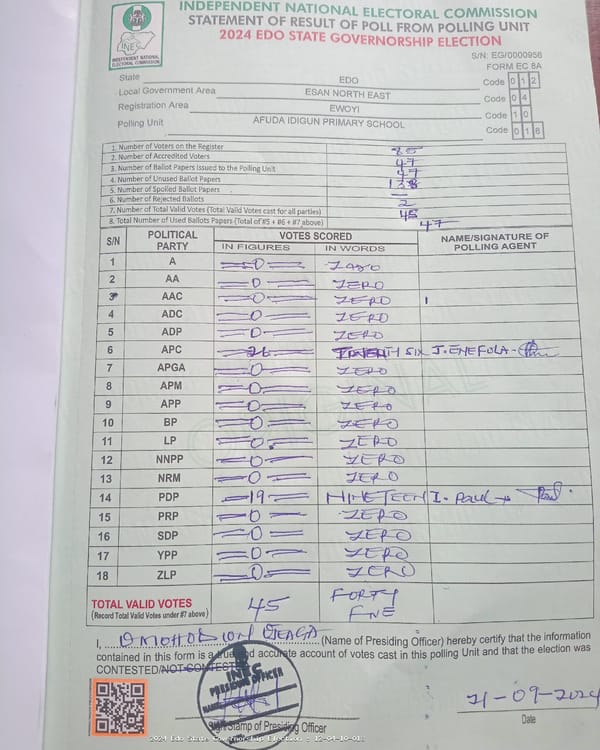 INDEPENDENT NATIONAL ELECTORAL COMMISSION
STATEMENT OF RESULT OF POLL FROM POLLING UNIT
2024 EDO STATE GOVERNORSHIP ELECTION
INEC
INDEPENDENT NATIONAL ELECTORAL COMMISSION
S/N: EG/0000956
FORM EC 8A
State EDO Code 0 1 2
Local Government Area ESAN NORTH EAST Code 0 4
Registration Area EWOYI Code 1 0
Polling Unit AFUDA IDIGUN PRIMARY SCHOOL Code 0 1 8
1. Number of Voters on the Register
2. Number of Accredited Voters 47
3. Number of Ballot Papers Issued to the Polling Unit
4. Number of Unused Ballot Papers 138
5. Number of Spoiled Ballot Papers —
6. Number of Rejected Ballots 2
7. Number of Total Valid Votes (Total Valid Votes cast for all parties) 45
8. Total Number of Used Ballots Papers (Total of #5 + #6 + #7 above) 47
S/N POLITICAL PARTY VOTES SCORED IN FIGURES IN WORDS NAME/SIGNATURE OF POLLING AGENT
1 A 0 ZERO
2 AA 0 ZERO
3 AAC 0 ZERO
4 ADC 0 ZERO
5 ADP 0 ZERO
6 APC 26 SIX J. ENEFOLA
7 APGA 0 ZERO
8 APM 0 ZERO
9 APP 0 ZERO
10 BP 0 ZERO
11 LP 0 ZERO
12 NNPP 0 ZERO
13 NRM 0 ZERO
14 PDP 19 NINETEEN I. Paul
15 PRP 0 ZERO
16 SDP 0 ZERO
17 YPP 0 ZERO
18 ZLP 0 ZERO
TOTAL VALID VOTES 45 FORTY FIVE
(Record Total Valid Votes under #7 above)
I, (Name of Presiding Officer) hereby certify that the information
contained in this form is a true and accurate account of votes cast in this polling Unit and that the election was
CONTESTED/NOT CONTESTED
INEC
PRESIDING OFFICER
21-09-2024
Stamp of Presiding Officer
Date
2024 Edo State Governorship Election - 12-04-10-018